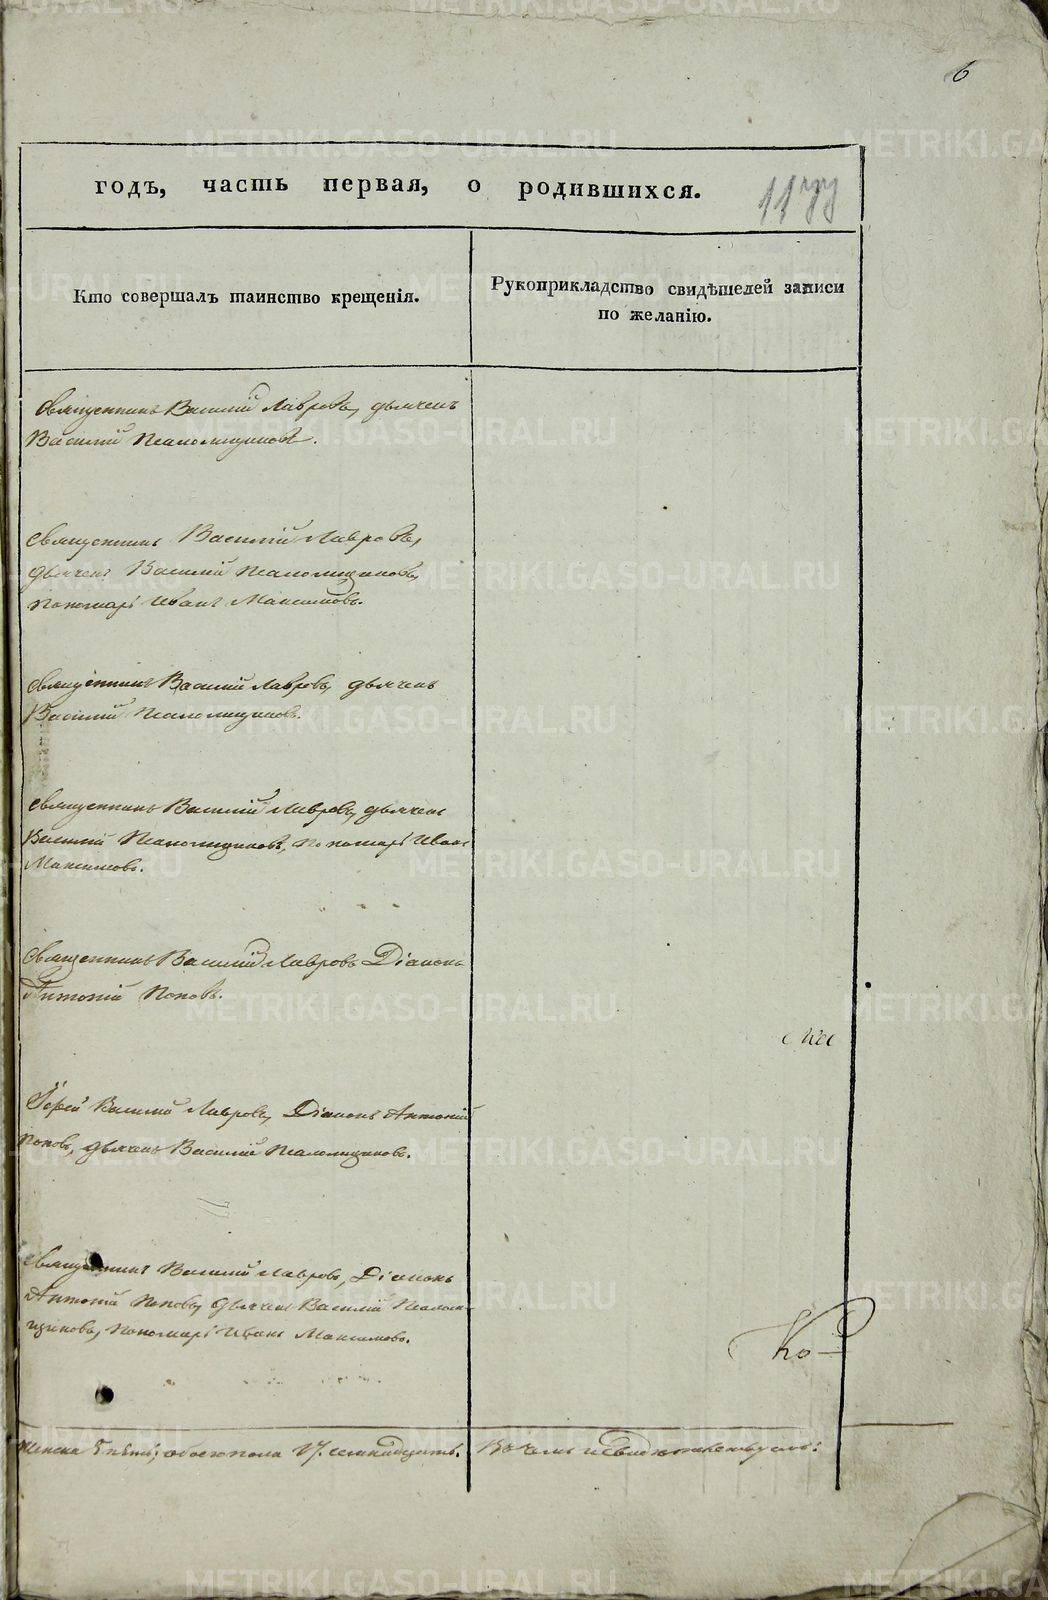 6
годъ, часть первая, о родившихся.
11
Кто совершалъ таинство крещенія.
Рукоприкладство свидѣтелей записи
по желанію.
Священникъ Василій Лавровъ, дьячекъ
Василій Псаломщиковъ.
Священникъ Василій Лавровъ,
дьячекъ Василій Псаломщиковъ,
пономарь Иванъ Максимовъ.
Священникъ Василій Лавровъ, дьячекъ
Василій Псаломщиковъ.
Священникъ Василій Лавровъ, дьячекъ
Василій Псаломщиковъ, пономарь Иванъ
Максимовъ.
Священникъ Василій Лавровъ Діаконъ
Антоній Поповъ.
Іерей Василій Лавровъ, Діаконъ Антоній
Поповъ, дьячекъ Василій Псаломщиковъ.
Священникъ Василій Лавровъ, Діаконъ
Антоній Поповъ, дьячекъ Василій Псалом-
щиковъ, пономарь Иванъ Максимовъ.
Ко
женска 5 пѣть, обоего пола 17. семнадцать.
Въ чемъ и свидѣтельствуемъ:
METRIKI.GASO-URAL.RU